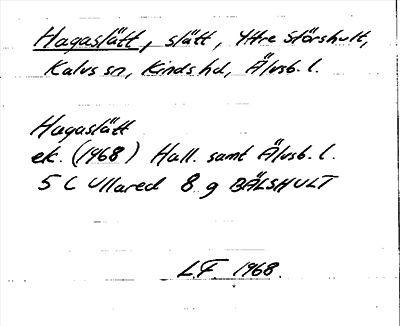 Hagaslätt, slätt, Yttre Störshult,
Kalvs sn, Kinds hd, Älvsb. l.
Hagaslätt
ek. (1968) Hall. samt Älvsb. l.
5 C Ullared 8 g BÄLSHULT
L.F. 1968.